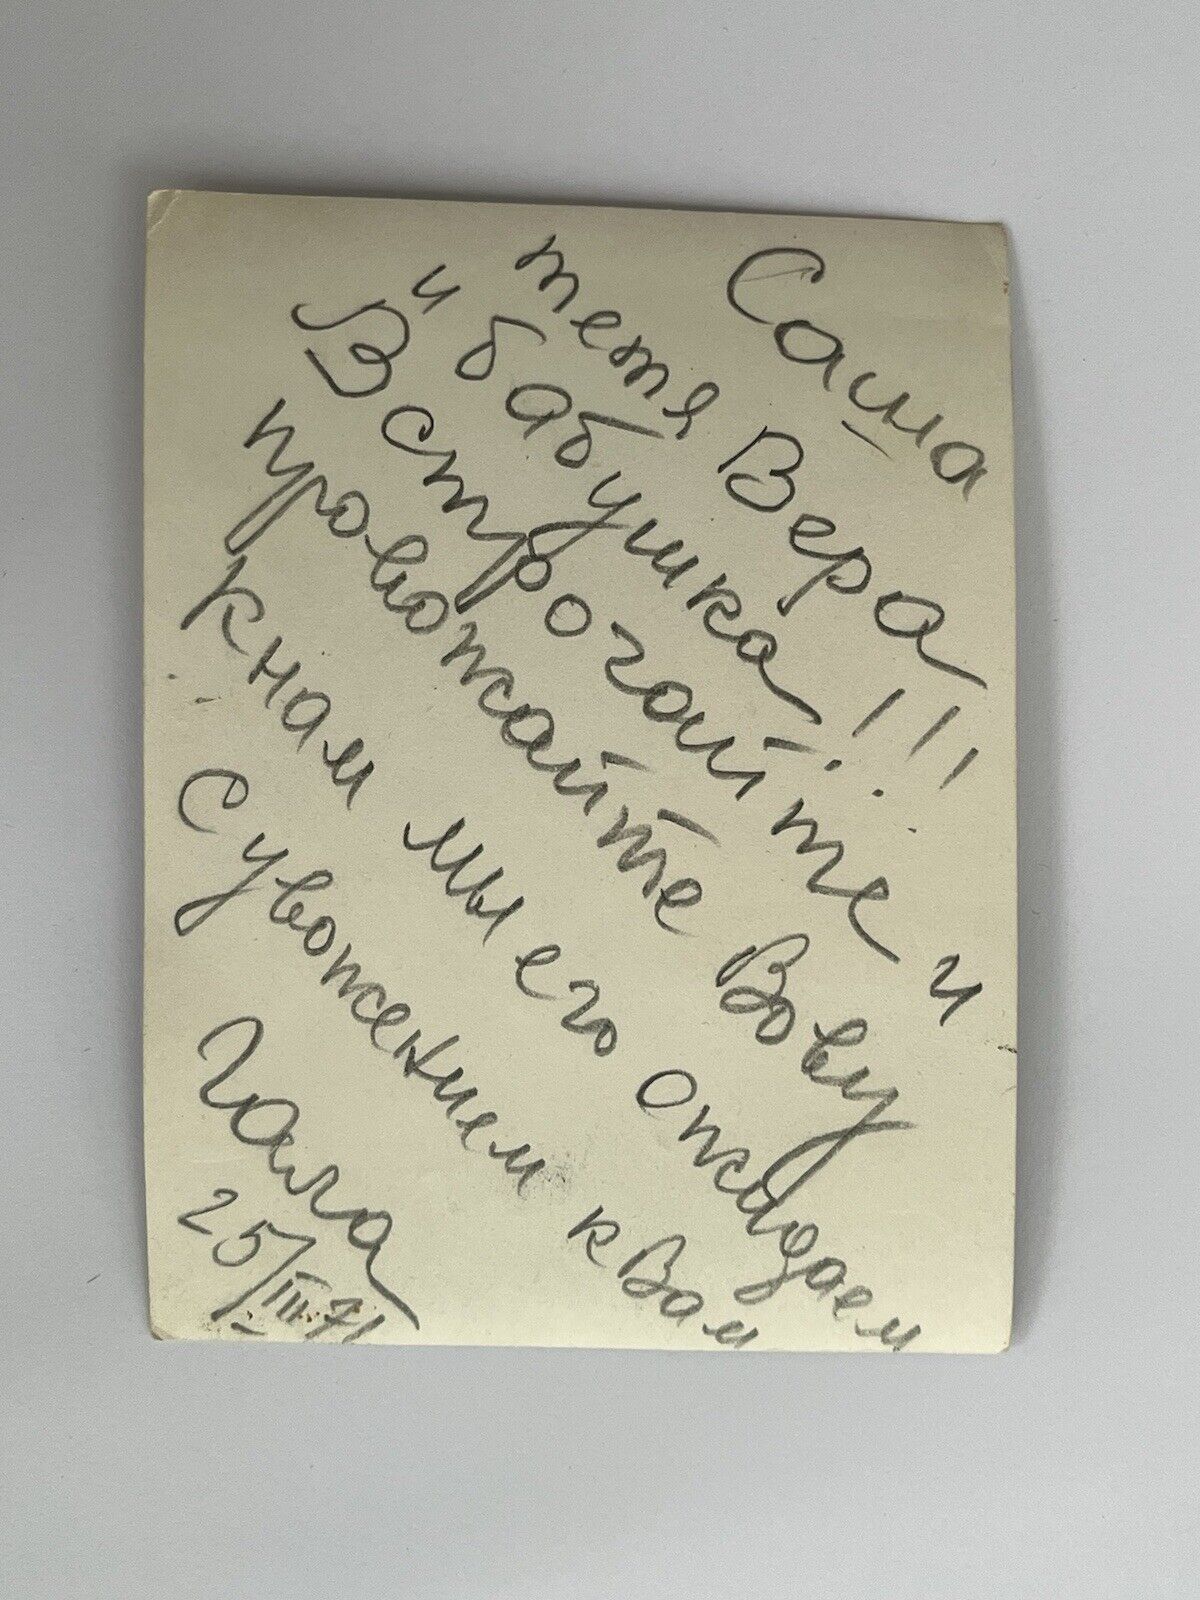 Саша
тетя Вера!!!
и бабушка!
Встрогайте и
провожайте Вову
к нам мы его ожидаем
С увожением к Вам
Галя
25/III.71